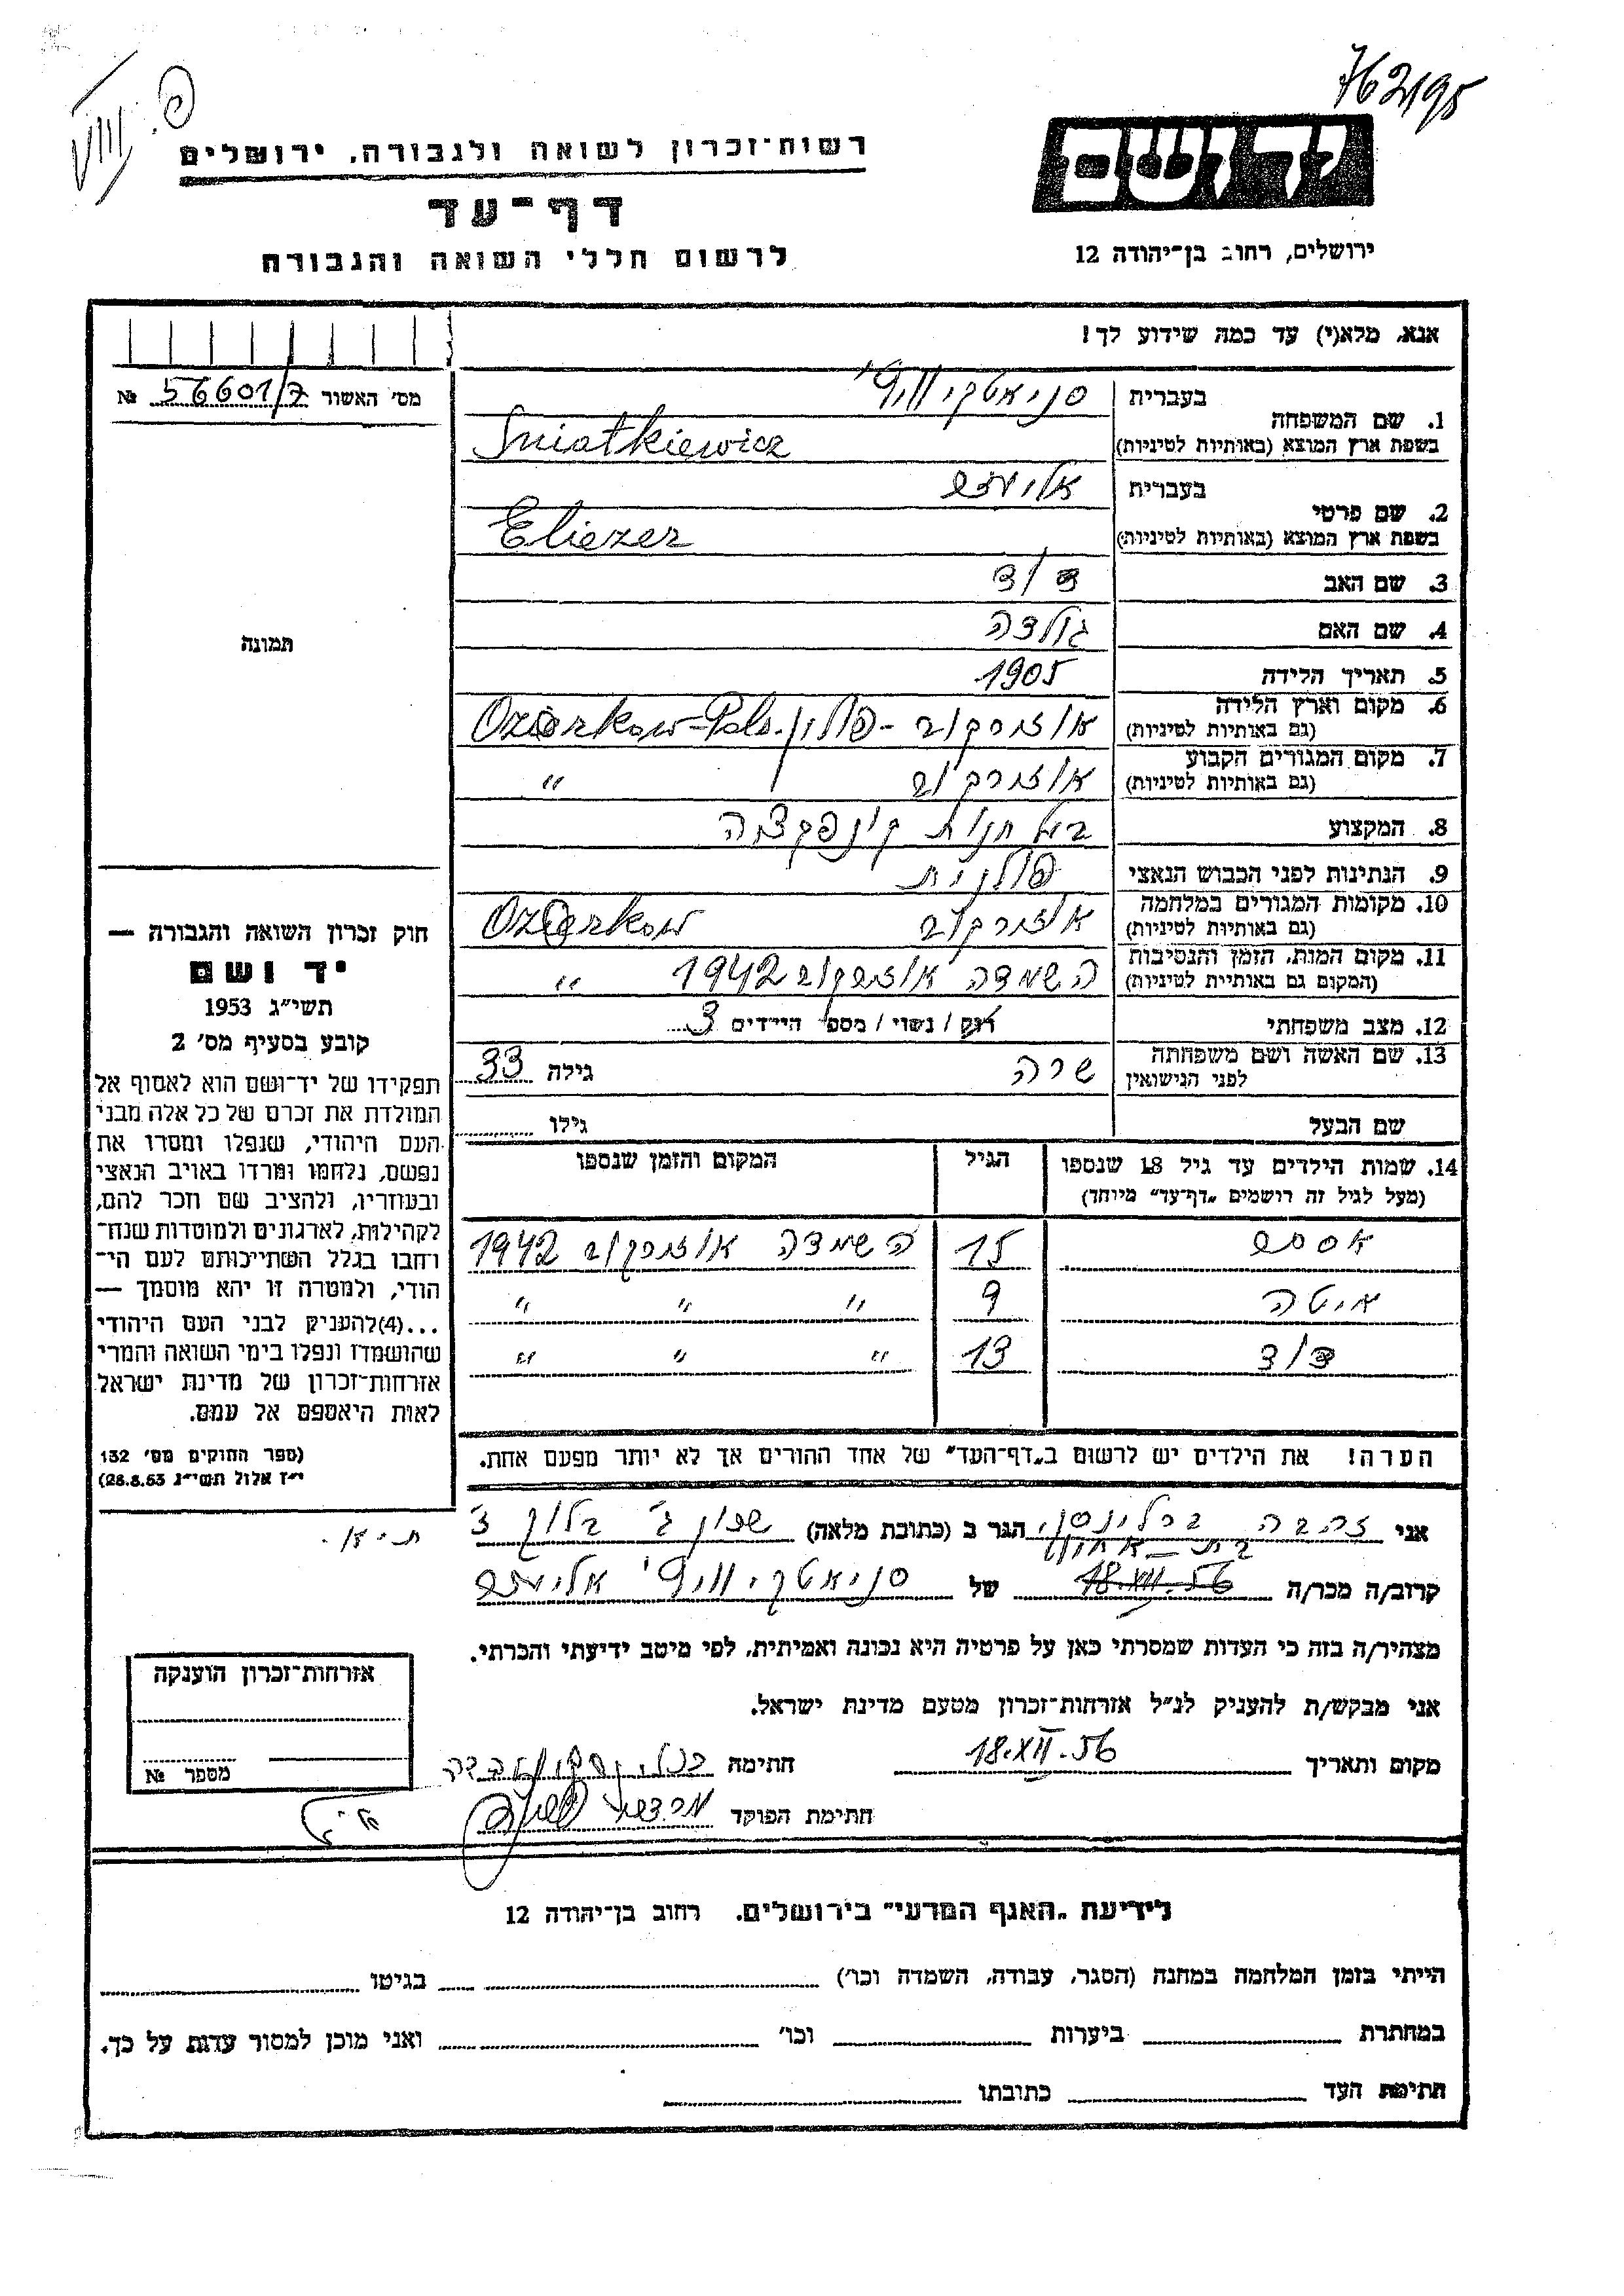 762/95
פ. VIII
יד ושם
ירושלים, רחוב בן־יהודה 12
רשות־זכרון לשואה ולגבורה, ירושלים
דף־עד
לרשום חללי השואה והגבורה
אנא, מלא(י) עד כמה שידוע לך!
מס׳ האשור 56601/7 №
1. שם המשפחה
בעברית סניאטקיוויץ׳
בשפת ארץ המוצא (באותיות לטיניות) Sniatkiewicz
2. שם פרטי
בעברית אליעזר
בשפת ארץ המוצא (באותיות לטיניות) Eliezer
3. שם האב דוד
4. שם האם גולדה
5. תאריך הלידה 1905
6. מקום וארץ הלידה אוזורקוב - פולין Ozorkow - Pols.
(גם באותיות לטיניות)
7. מקום המגורים הקבוע אוזורקוב ״
(גם באותיות לטיניות)
8. המקצוע בעל חנות קונפקציה
9. הנתינות לפני הכבוש הנאצי פולנית
10. מקומות המגורים במלחמה אוזורקוב Ozorkow
(גם באותיות לטיניות)
11. מקום המות, הזמן והנסיבות השמדה אוזורקוב 1942 ״
(המקום גם באותיות לטיניות)
12. מצב משפחתי רוק / נשוי / מספר הילדים 3
13. שם האשה ושם משפחתה שרה גילה 33
לפני הנישואין
שם הבעל גילו
14. שמות הילדים עד גיל 18 שנספו הגיל המקום והזמן שנספו
(מעל לגיל זה רושמים „דף־עד״ מיוחד)
אסתר 15 השמדה אוזורקוב 1942
איטה 9 ״ ״ ״
דוד 13 ״ ״ ״
הערה! את הילדים יש לרשום ב„דף־העד״ של אחד ההורים אך לא יותר מפעם אחת.
תמונה
חוק זכרון השואה והגבורה —
יד ושם
תשי״ג 1953
קובע בסעיף מס׳ 2
תפקידו של יד־ושם הוא לאסוף אל
המולדת את זכרם של כל אלה מבני
העם היהודי, שנפלו ומסרו את
נפשם, נלחמו ומרדו באויב הנאצי
ובעוזריו, ולהציב שם וזכר להם,
לקהילות, לארגונים ולמוסדות שנח־
רחבו בגלל השתייכותם לעם הי־
הודי, ולמטרה זו יהא מוסמך —
...(4)להעניק לבני העם היהודי
שהושמדו ונפלו בימי השואה והמרי
אזרחות־זכרון של מדינת ישראל
לאות היאספם אל עמם.
(ספר החוקים מס׳ 132
י״ז אלול תשי״ג 28.8.53)
אני זהבה ברלינסקי הגר ב (כתובת מלאה) שכון ג׳ בלוק
קרוב/ה מכר/ה 18.XII.56 של סניאטקיוויץ׳ אליעזר
מצהיר/ה בזה כי העדות שמסרתי כאן על פרטיה היא נכונה ואמיתית, לפי מיטב ידיעתי והכרתי.
אני מבקש/ת להעניק לנ״ל אזרחות־זכרון מטעם מדינת ישראל.
מקום ותאריך 18.XII.56 חתימה
חתימת הפוקד
אזרחות־זכרון הוענקה
מספר №
לידיעת „האגף המדעי״ בירושלים, רחוב בן־יהודה 12
הייתי בזמן המלחמה במחנה (הסגר, עבודה, השמדה וכו׳) בגיטו
במחתרת ביערות וכו׳ ואני מוכן למסור עדות על כך.
חתימת העד כתובתו